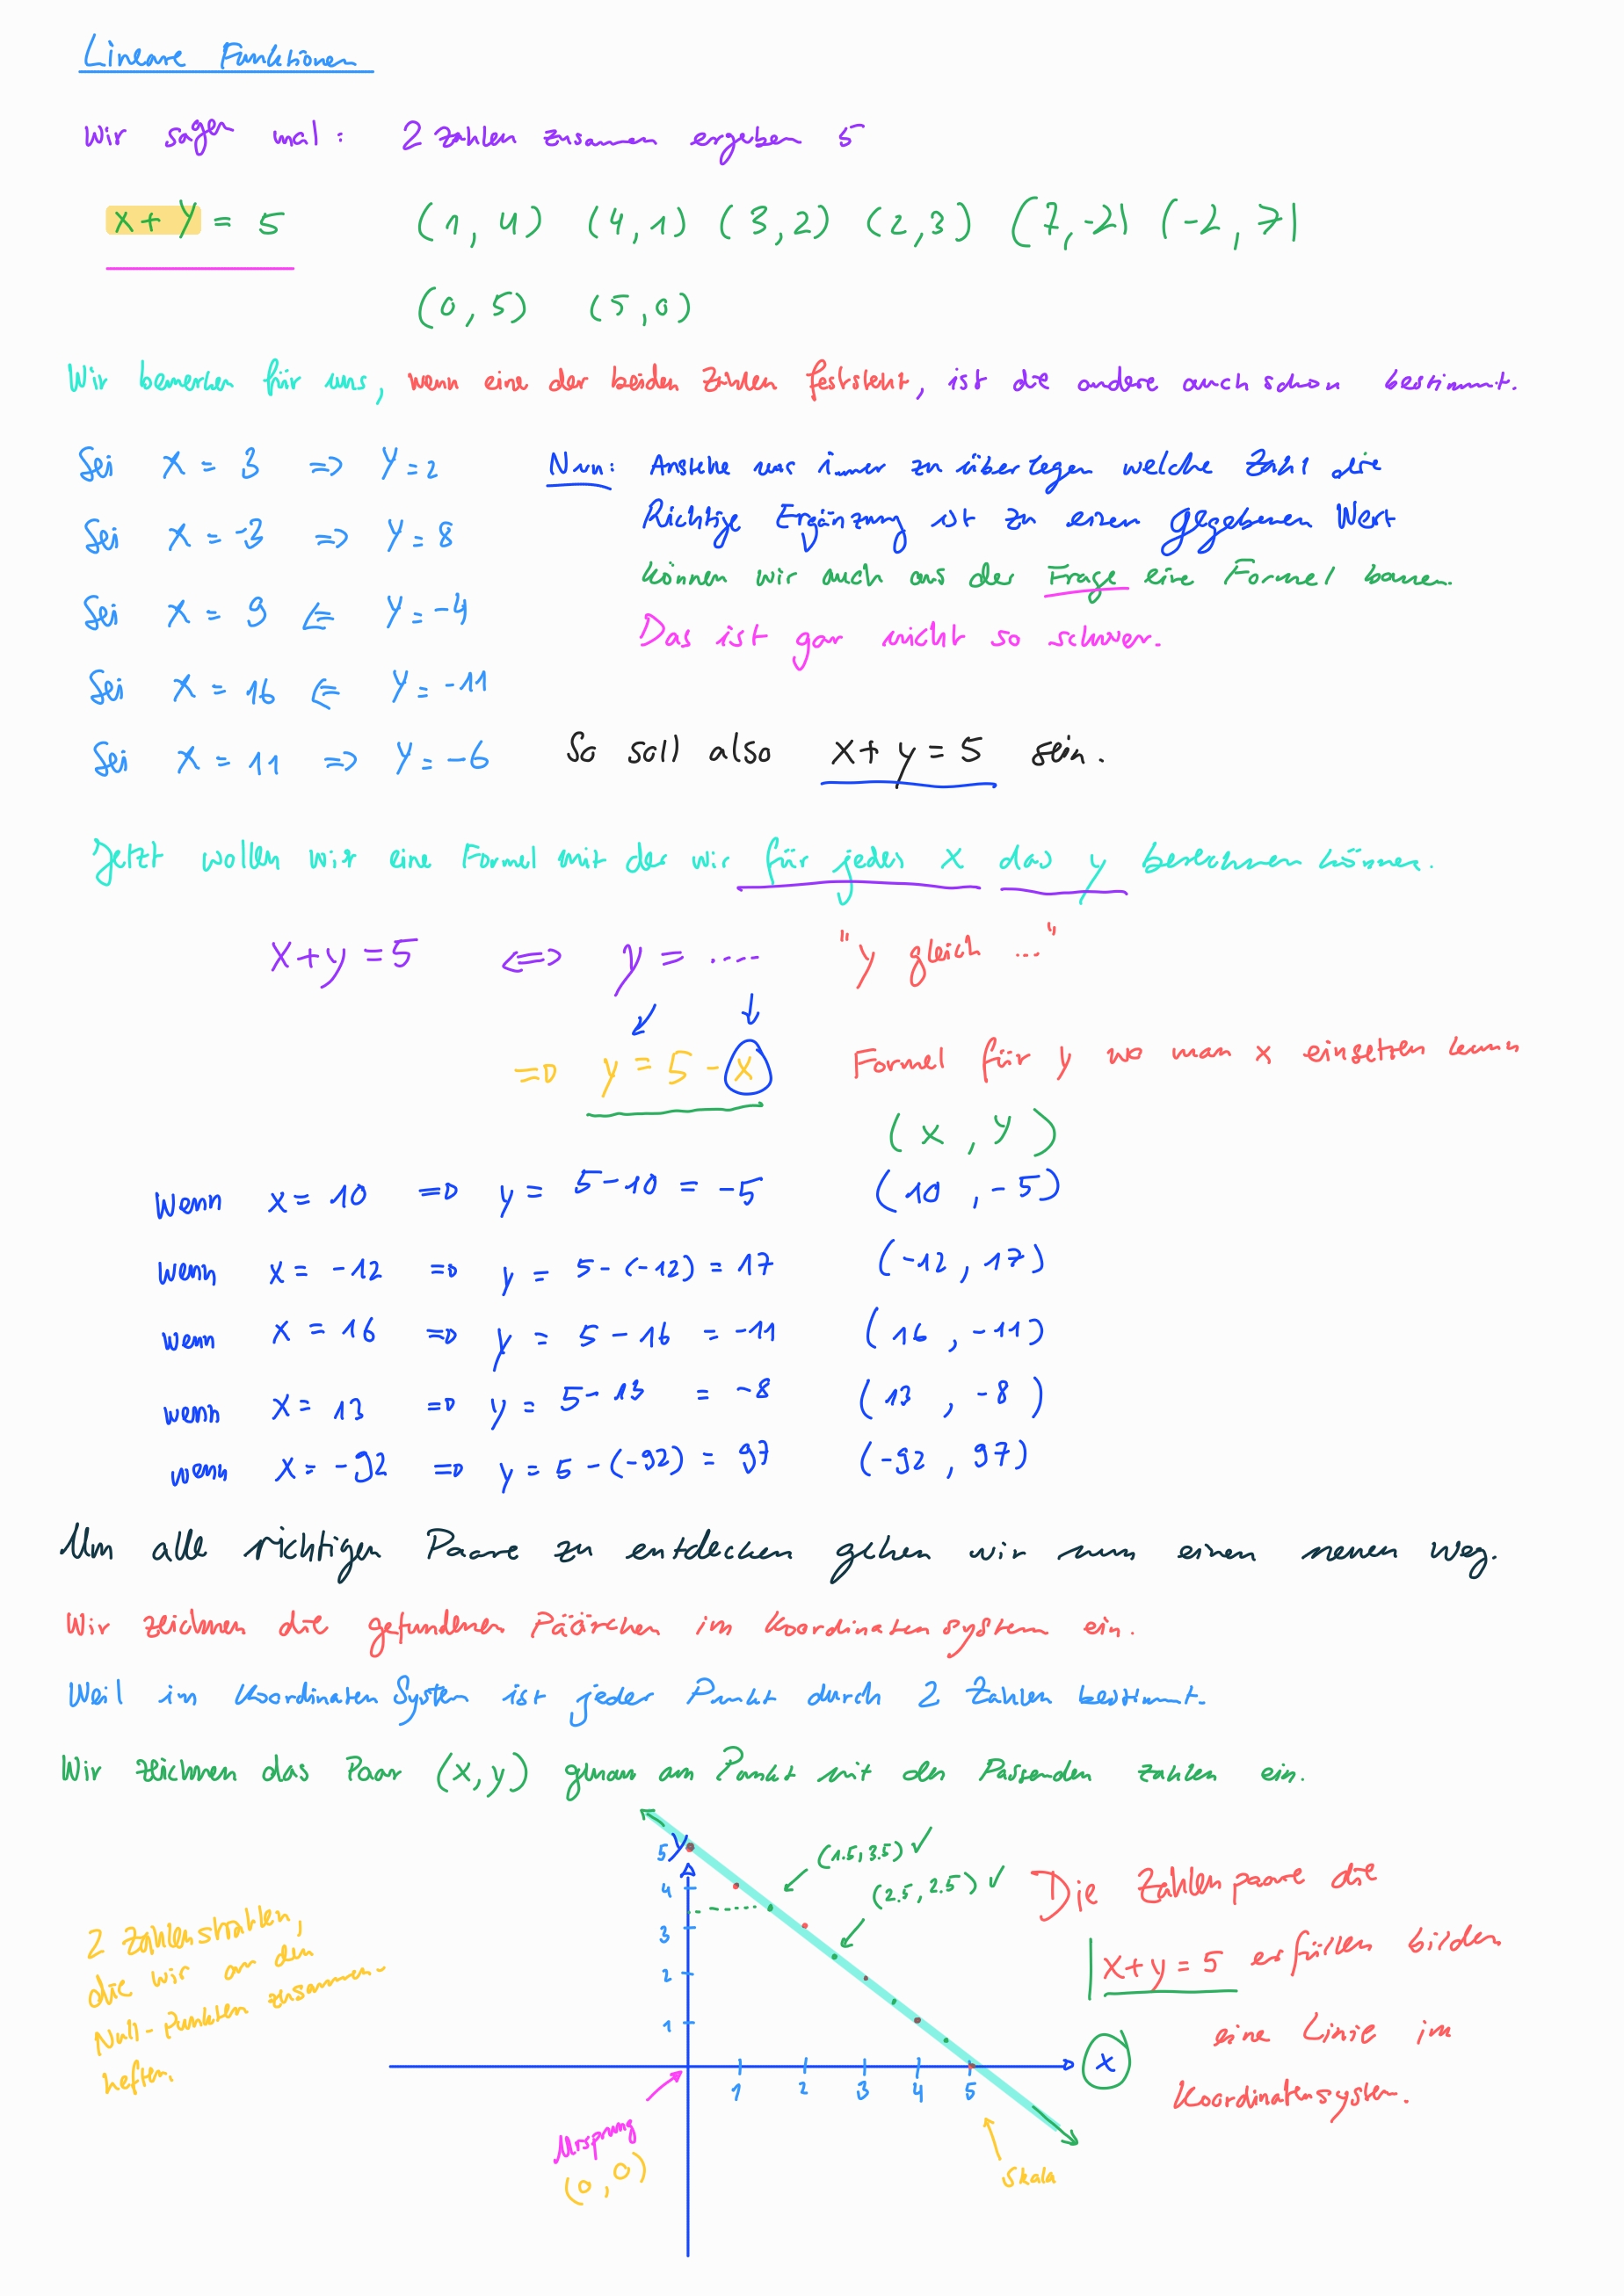 Lineare Funktionen
Wir sagen mal: 2 Zahlen zusammen ergeben 5
x + y = 5 (1, 4) (4, 1) (3, 2) (2, 3) (7, -2) (-2, 7)
(0, 5) (5, 0)
Wir bemerken für uns, wenn eine der beiden Zahlen feststeht, ist die andere auch schon bestimmt.
Sei x = 3 => y = 2
Sei x = -3 => y = 8
Sei x = 9 <= y = -4
Sei x = 16 <= y = -11
Sei x = 11 => y = -6
Nun: Anstehe uns immer zu überlegen welche Zahl die
Richtige Ergänzung ist zu einen gegebenen Wert
können wir auch aus der Frage eine Formel bauen.
Das ist gar nicht so schwer.
So soll also x + y = 5 sein.
Jetzt wollen wir eine Formel mit der wir für jedes x das y berechnen können.
x + y = 5 <=> y = ..... "y gleich ..."
=> y = 5 - x Formel für y wo man x einsetzen kann
(x, y)
Wenn x = 10 => y = 5 - 10 = -5 (10, -5)
wenn x = -12 => y = 5 - (-12) = 17 (-12, 17)
wenn x = 16 => y = 5 - 16 = -11 (16, -11)
wenn x = 13 => y = 5 - 13 = -8 (13, -8)
wenn x = -92 => y = 5 - (-92) = 97 (-92, 97)
Um alle richtigen Paare zu entdecken gehen wir nun einen neuen Weg.
Wir zeichnen die gefundenen Päärchen im Koordinatensystem ein.
Weil im Koordinaten System ist jeder Punkt durch 2 Zahlen bestimmt.
Wir zeichnen das Paar (x, y) genau am Punkt mit den Passenden zahlen ein.
2 Zahlenstrahlen,
die wir an den
Null-Punkten zusammen-
heften.
y
5
4
3
2
1
(1.5, 3.5) ✓
(2.5, 2.5) ✓
1 2 3 4 5
x
Ursprung
(0, 0)
Skala
Die Zahlenpaare die
x + y = 5 erfüllen bilden
eine Linie im
Koordinatensystem.